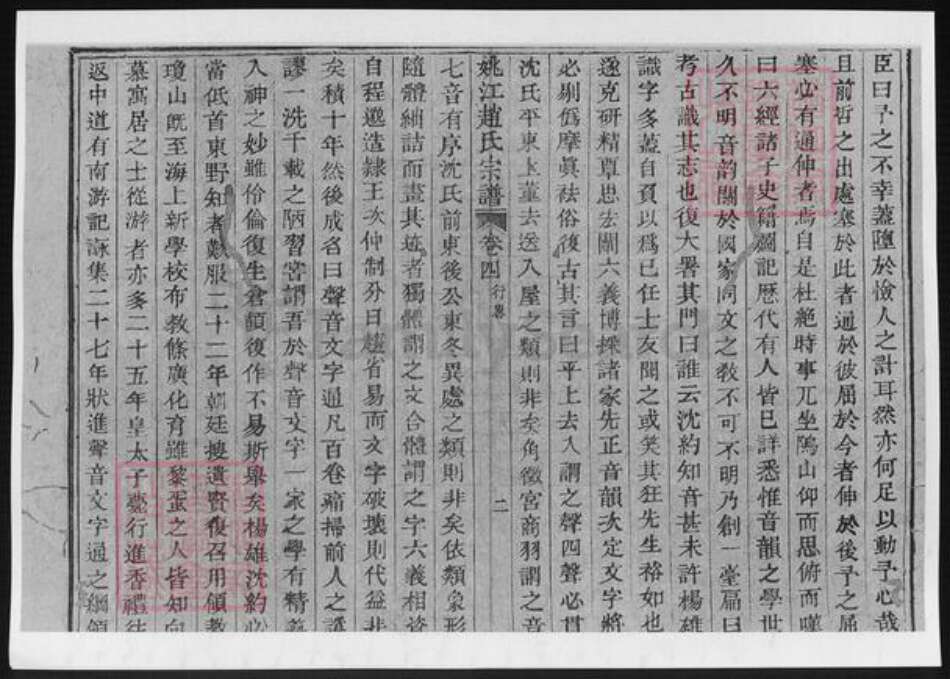 臣曰予之不幸蓋墮於憸人之計耳然亦何足以動予心哉
且前哲之出處塞於此者通於彼屈於今者伸於後予之屈
塞必有通伸者焉自是杜絶時事兀坐隖山仰而思俯而嘆
曰六經諸子史籍圖記歴代有人皆已詳悉惟音韻之學世
久不明音韵關於國家同文之敎不可不明乃創一臺扁曰
考古識其志也復大署其門曰誰云沈約知音甚未許楊雄
識字多蓋自負以爲已任士友聞之或笑其狂先生裕如也
遂克研精覃思宏闡六義博採諸家先正音韻次定文字將
必剔僞摩眞祛俗復古其言曰平上去入謂之聲四聲必貫
沈氏平東上董去送入屋之類則非矣角徵宮商羽謂之音
姚江趙氏宗譜 卷四 行畧 二
七音有序沈氏前東後公東冬異處之類則非矣依類象形
隨體詰而畫其迹者獨體謂之文合體謂之字六義相資
自程邈造隸王次仲制分日趨省易而文字破壞則代益非
矣積十年然後成名曰聲音文字通凡百卷痛掃前人之譌
謬一洗千載之陋習嘗謂吾於聲音文字一家之學有精義
入神之妙雖伶倫復生倉頡復作不易斯舉矣楊雄沈約必
當低首東野知者歎服二十二年朝廷搜遺賢復召用領教
瓊山既至海上新學校布教條廣化育雖黎蜑之人皆知向
慕寓居之士從游者亦多二十五年皇太子薨行進香禮往
返中道有南游記詠集二十七年狀進聲音文字通之綱領